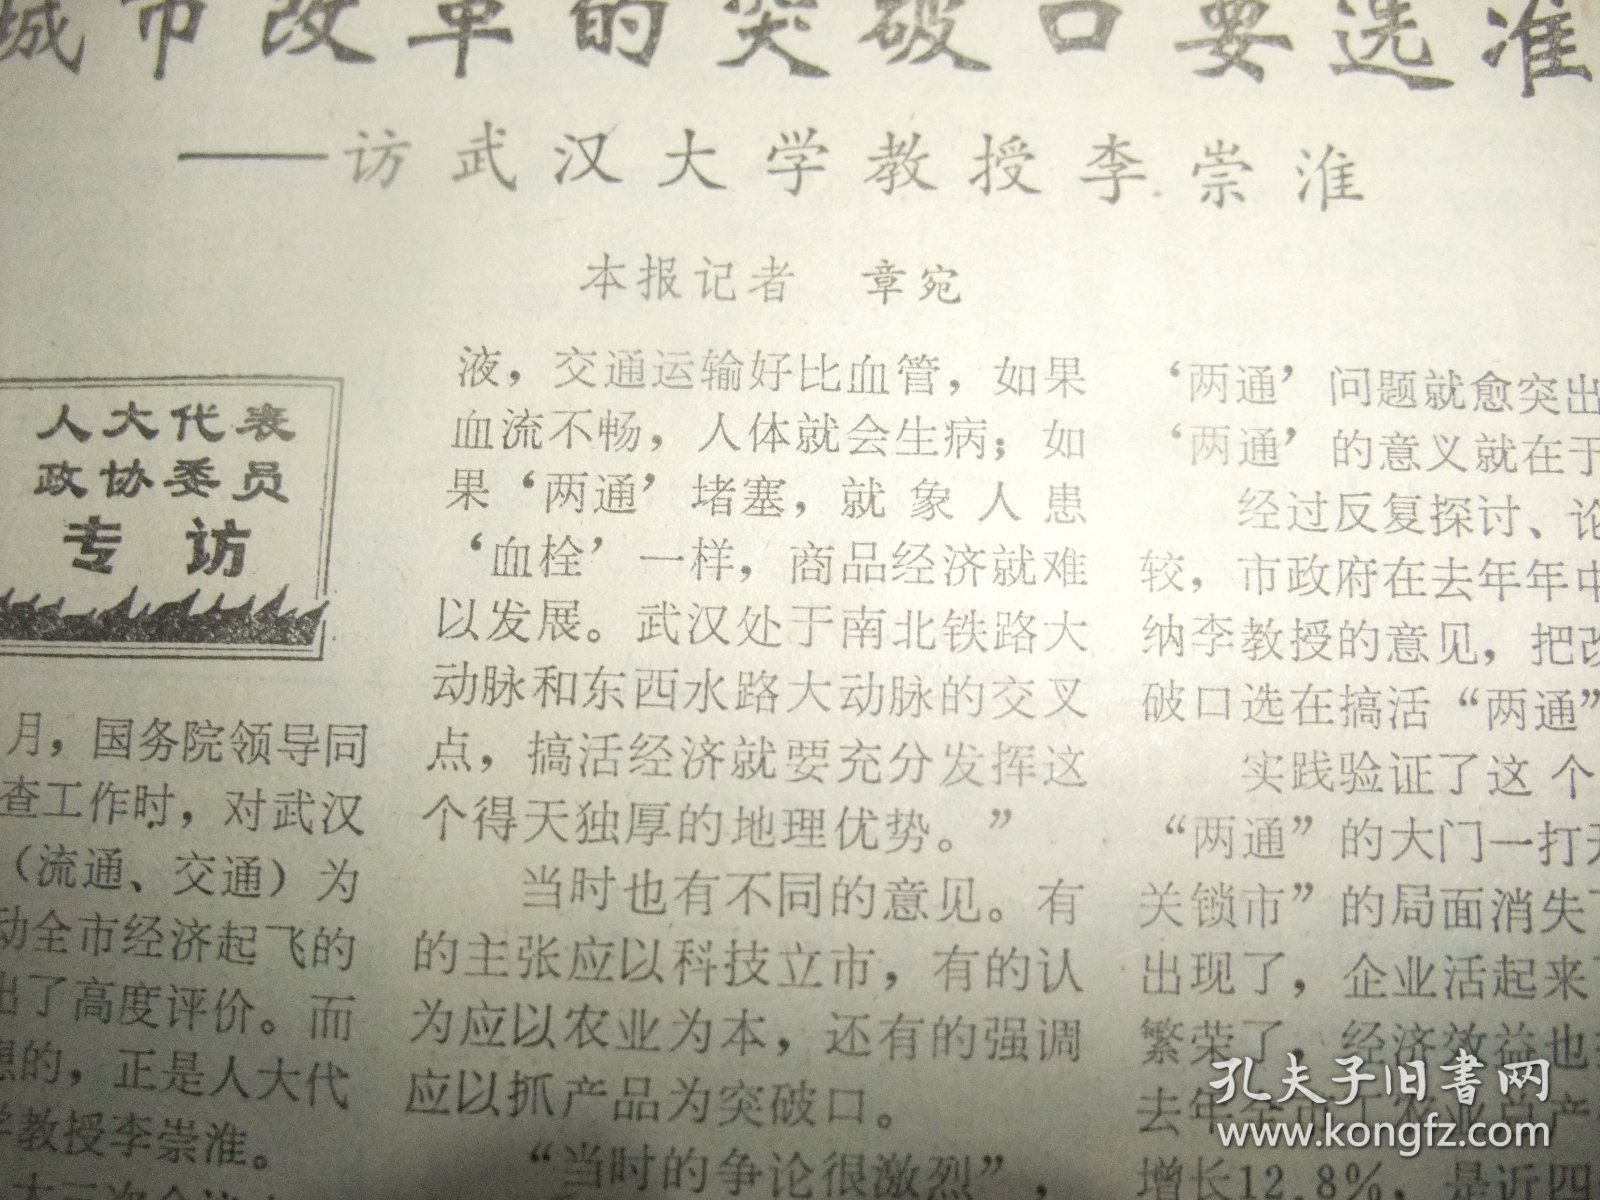 城市改革的突破口要选准
——访武汉大学教授李崇淮
本报记者 章宛
人大代表
政协委员
专访
月，国务院领导同
查工作时，对武汉
（流通、交通）为
动全市经济起飞的
出了高度评价。而
想的，正是人大代
学教授李崇淮。
液，交通运输好比血管，如果
血流不畅，人体就会生病；如
果‘两通’堵塞，就象人患
‘血栓’一样，商品经济就难
以发展。武汉处于南北铁路大
动脉和东西水路大动脉的交叉
点，搞活经济就要充分发挥这
个得天独厚的地理优势。”
当时也有不同的意见。有
的主张应以科技立市，有的认
为应以农业为本，还有的强调
应以抓产品为突破口。
“当时的争论很激烈”，
‘两通’问题就愈突出
‘两通’的意义就在于
经过反复探讨、论
较，市政府在去年年中
纳李教授的意见，把改
破口选在搞活“两通”
实践验证了这个
“两通”的大门一打开
关锁市”的局面消失了
出现了，企业活起来了
繁荣了，经济效益也
去年全市工农业总产
增长12.8%，是近四
孔夫子旧书网
www.kongfz.com